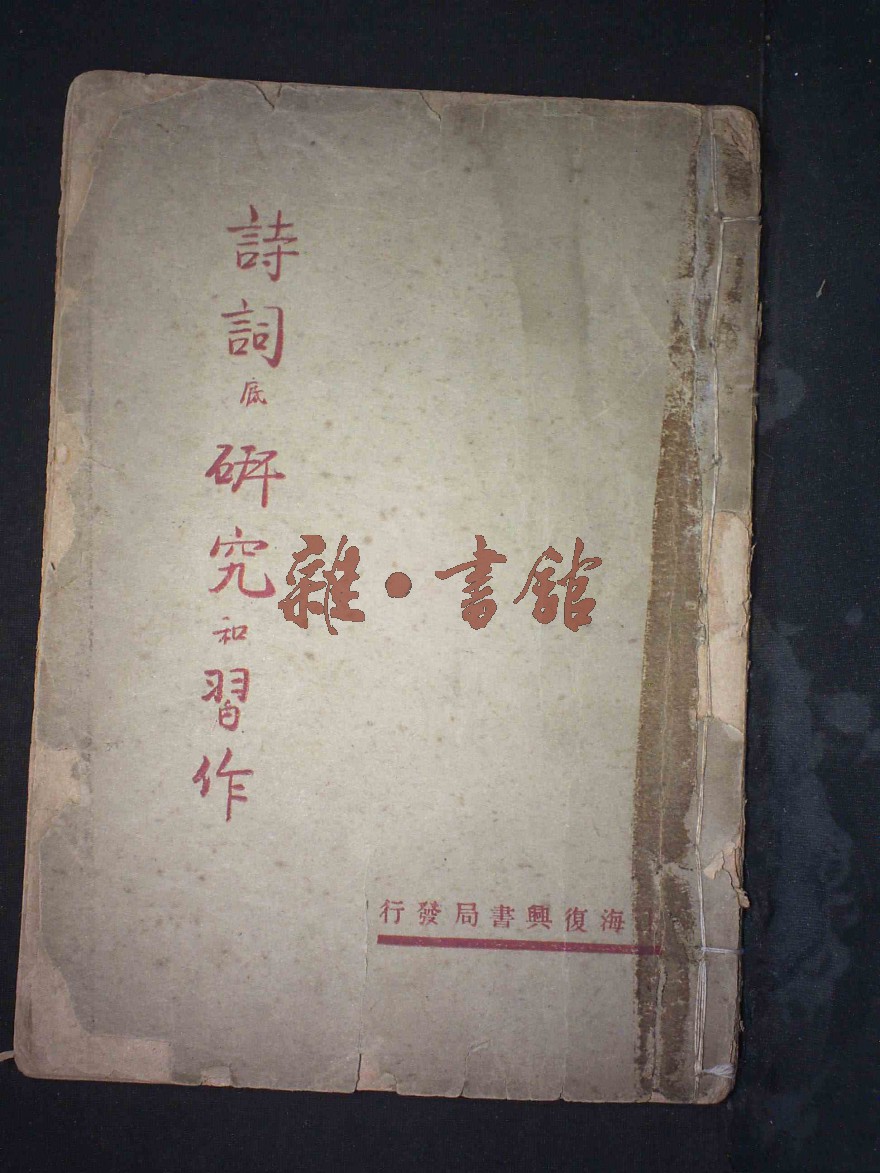 詩詞底研究和習作
雜·書館
海復興書局發行